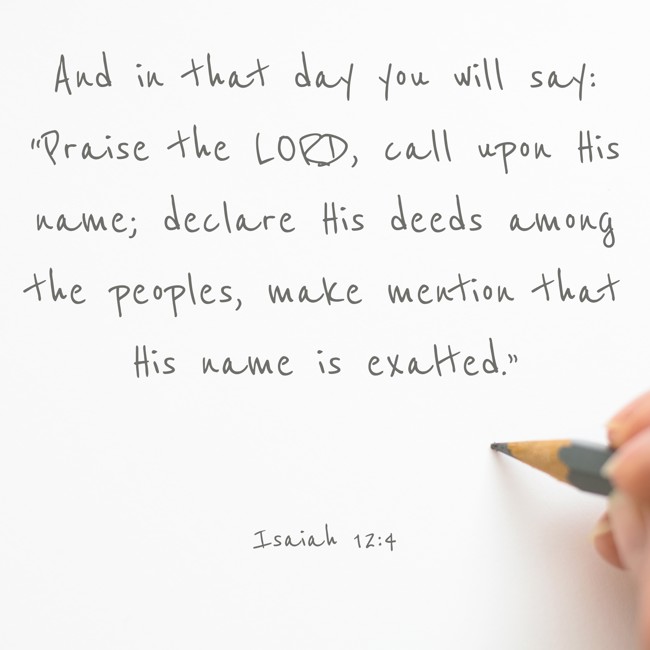 And in that day you will say:
"Praise the LORD, call upon His
name; declare His deeds among
the peoples, make mention that
His name is exalted.”
Isaiah 12:4